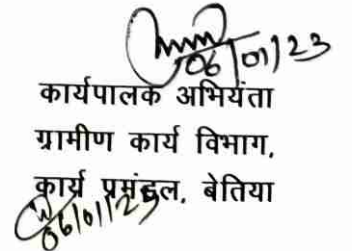 06/01/23
कार्यपालक अभियंता
ग्रामीण कार्य विभाग,
कार्य प्रमंडल, बेतिया
06/01/23